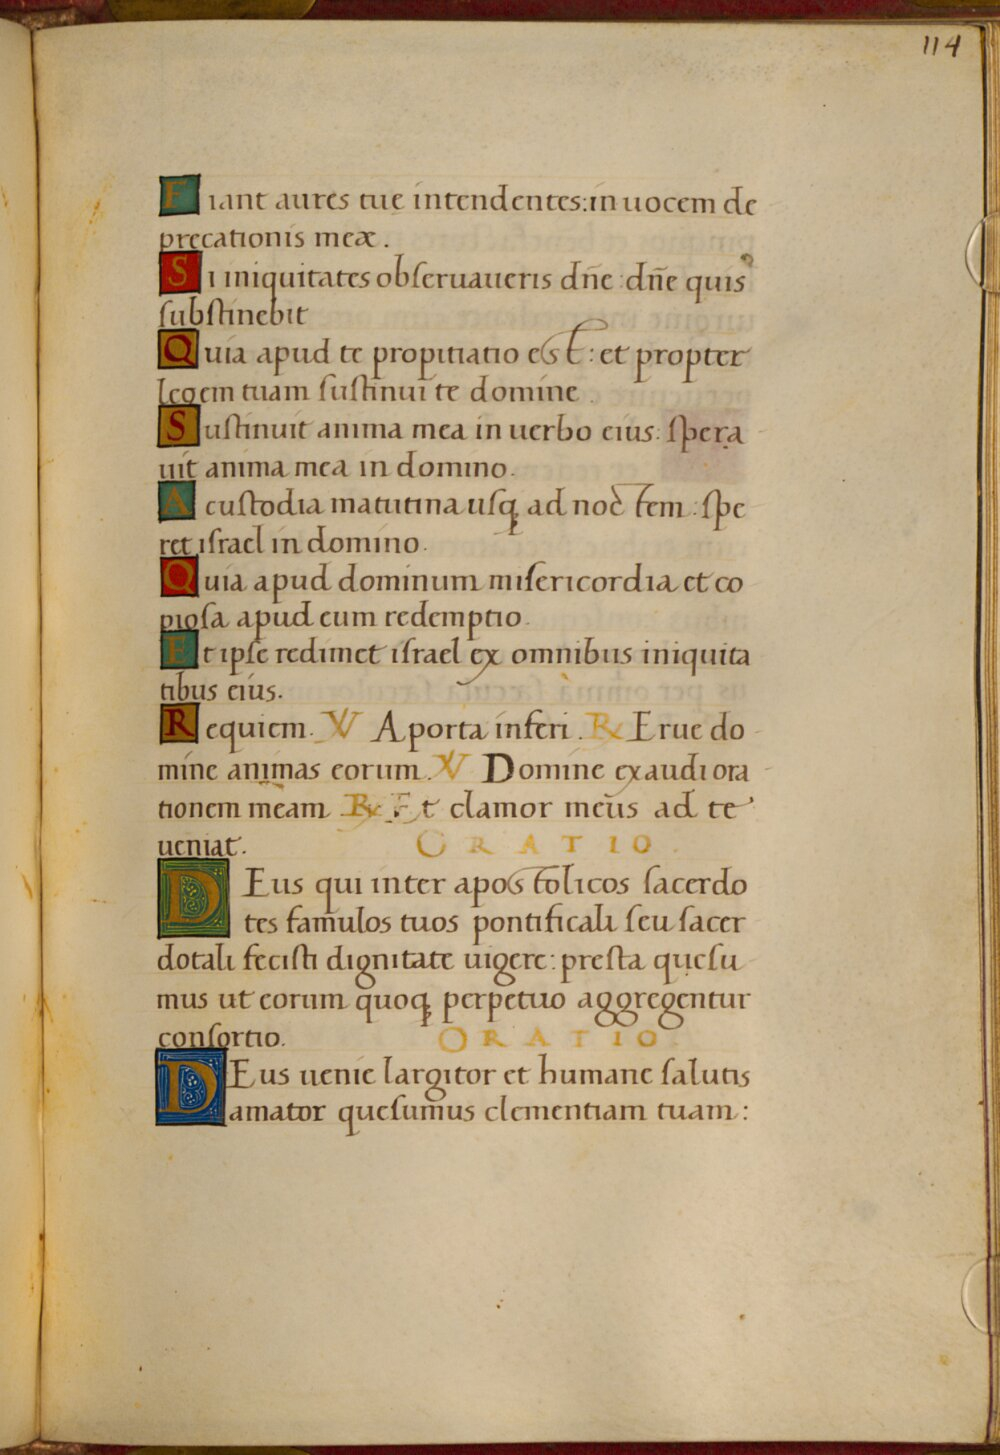 114
Fiant aures tuę intendentes: in uocem de
precationis meæ.
Si iniquitates obſeruaueris dñe : dñe quis
ſubſtinebit
Quia apud te propitiatio eſt : et propter
legem tuam ſuſtinui te domine.
Suſtinuit anima mea in uerbo eius: ſpera
uit anima mea in domino.
A cuſtodia matutina uſq ad noctem : ſpe
ret iſrael in domino.
Quia apud dominum miſericordia et co
pioſa apud eum redemptio.
Et ipſe redimet iſrael ex omnibus iniquita
tibus eius.
Requiem. ℣ A porta inferi. ℟ Erue do
mine animas eorum. ℣ Domine exaudi ora
tionem meam ℟ Et clamor meus ad te
ueniat. ORATIO.
DEus qui inter apoſtolicos ſacerdo
tes famulos tuos pontificali ſeu ſacer
dotali feciſti dignitate uigere: preſta queſu
mus ut eorum quoq perpetuo aggregentur
conſortio. ORATIO.
DEus uenie largitor et humane ſalutis
amator queſumus clementiam tuam :